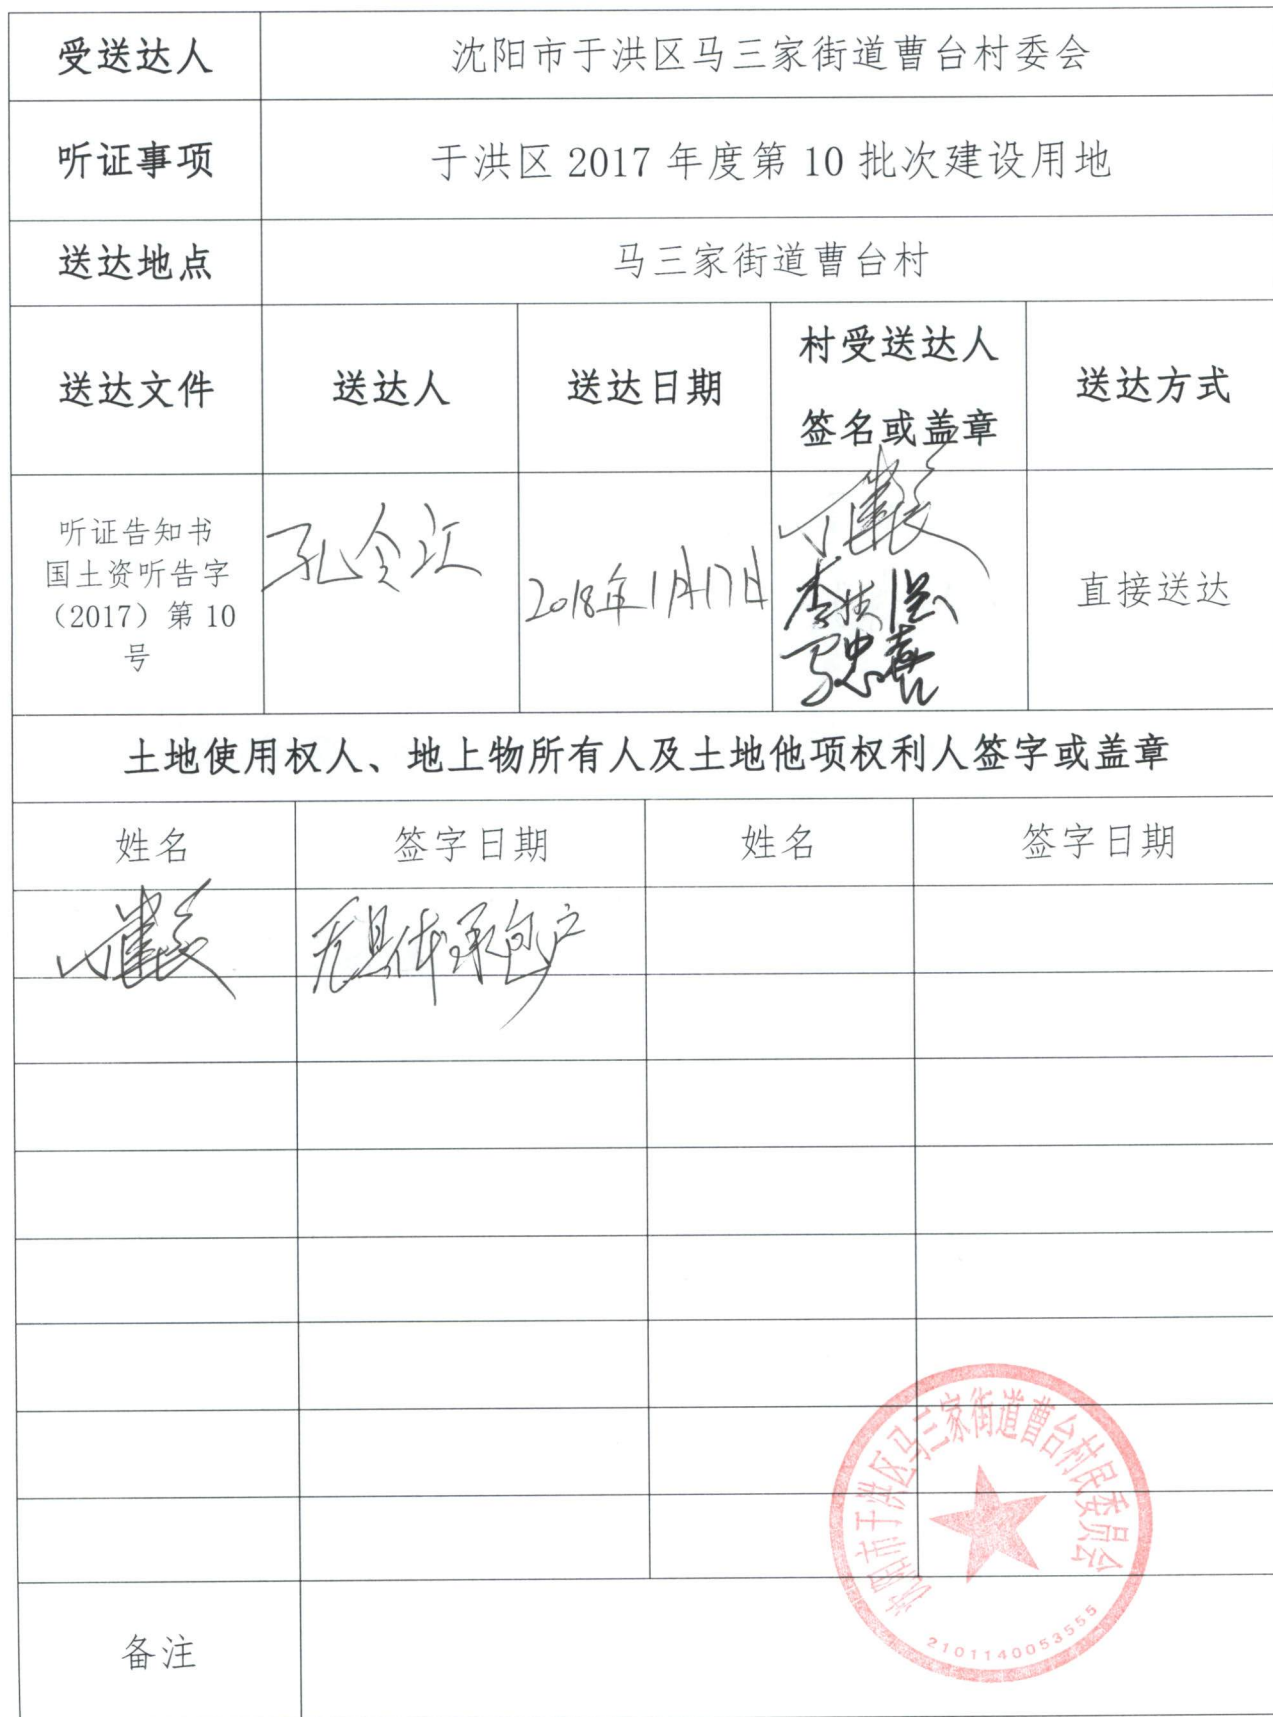 受送达人 沈阳市于洪区马三家街道曹台村委会
听证事项 于洪区 2017 年度第 10 批次建设用地
送达地点 马三家街道曹台村
送达文件 送达人 送达日期 村受送达人 送达方式
签名或盖章
听证告知书
国土资听告字
（2017）第 10
号
孔令江
2018年1月17日
马忠喜
直接送达
土地使用权人、地上物所有人及土地他项权利人签字或盖章
姓名 签字日期 姓名 签字日期
无具体承包户
备注
沈阳市于洪区马三家街道曹台村民委员会
2101140053555